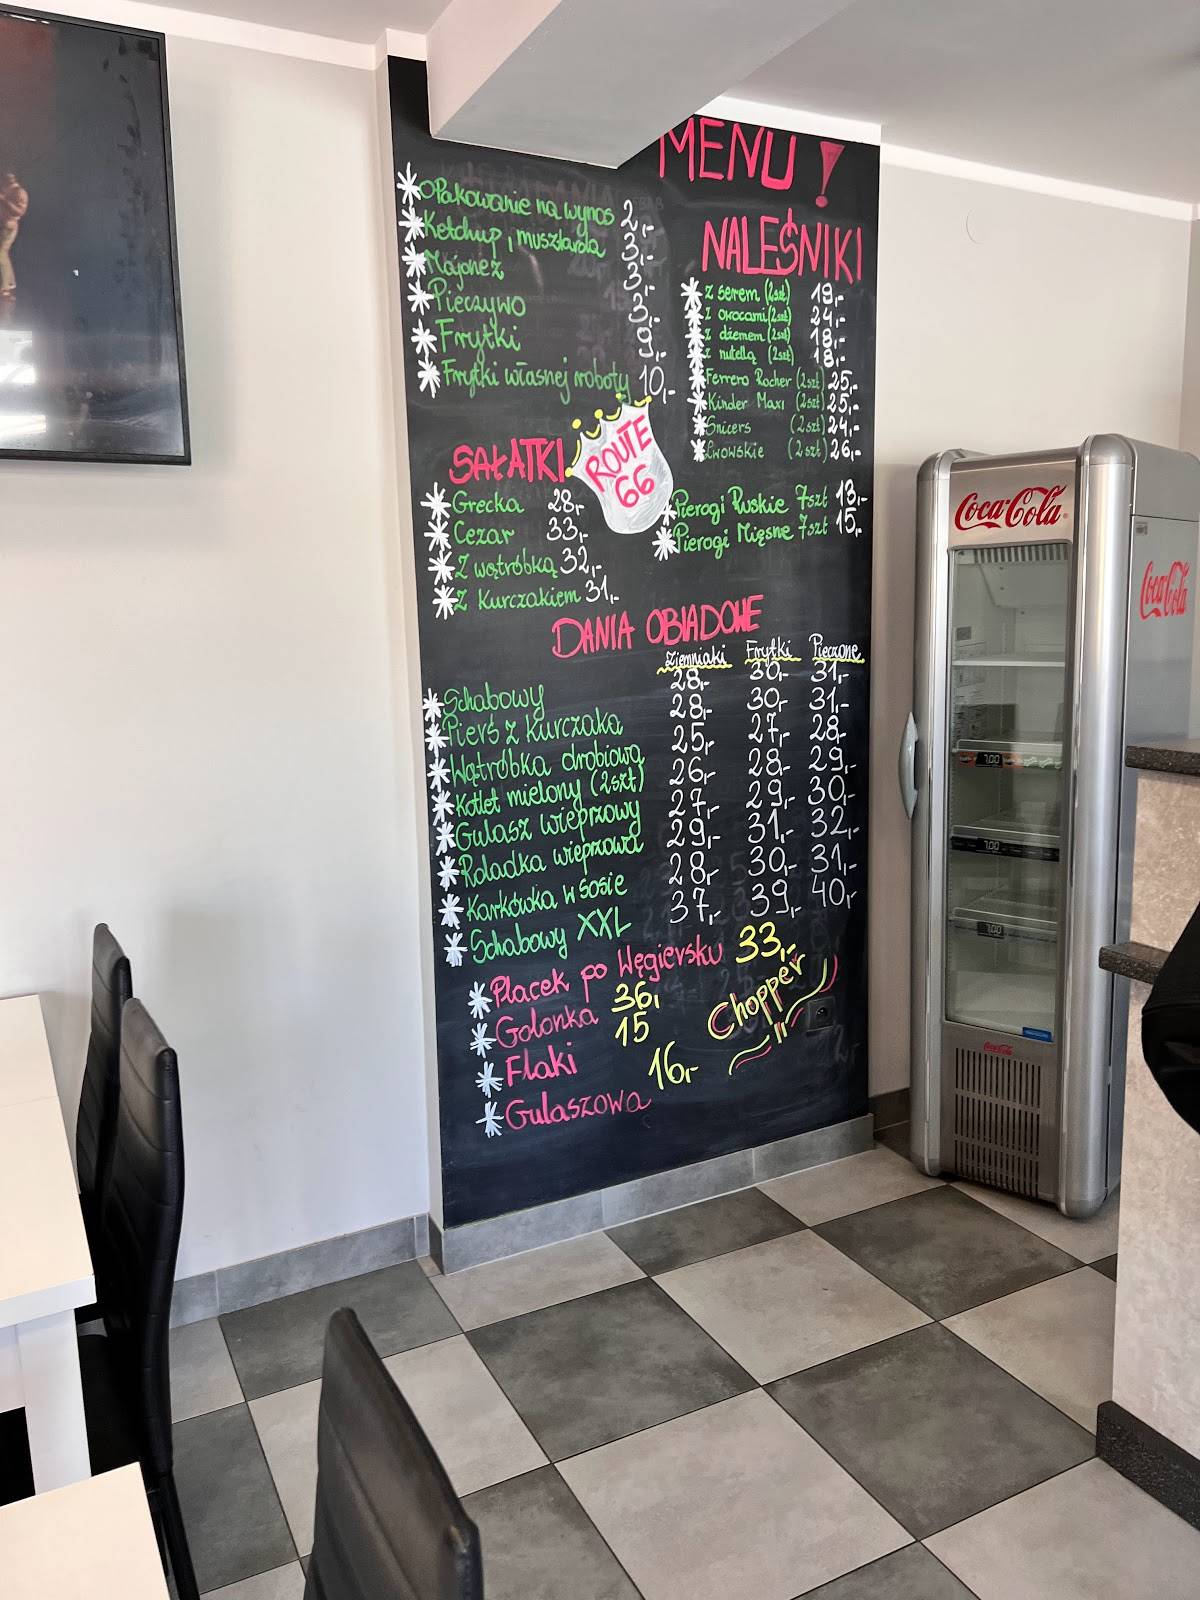 MENU!
Opakowanie na wynos 2,-
Ketchup, musztarda 3,-
Majonez 3,-
Pieczywo 3,-
Frytki 9,-
Frytki własnej roboty 10,-
NALEŚNIKI
z serem (2szt) 19,-
z owocami (2szt) 24,-
z dżemem (2szt) 18,-
z nutellą (2szt) 18,-
Ferrero Rocher (2szt) 25,-
Kinder Maxi (2szt) 25,-
Snicers (2szt) 24,-
Lwowskie (2szt) 26,-
ROUTE
66
SAŁATKI
Grecka 28,-
Cezar 33,-
Z wątróbką 32,-
Z Kurczakiem 31,-
Pierogi Ruskie 7szt 13,-
Pierogi Mięsne 7szt 15,-
DANIA OBIADOWE
Ziemniaki Frytki Pieczone
Schabowy 28,- 30,- 31,-
Pierś z kurczaka 28,- 30,- 31,-
Wątróbka drobiowa 25,- 27,- 28,-
Kotlet mielony (2szt) 26,- 28,- 29,-
Gulasz wieprzowy 27,- 29,- 30,-
Roladka wieprzowa 29,- 31,- 32,-
Karkówka w sosie 28,- 30,- 31,-
Schabowy XXL 37,- 39,- 40,-
Placek po Węgiersku 33,-
Golonka 36,-
Flaki 15
Gulaszowa 16,-
Chopper
II
Coca-Cola
Coca-Cola
7,00
7,00
7,00
Coca-Cola